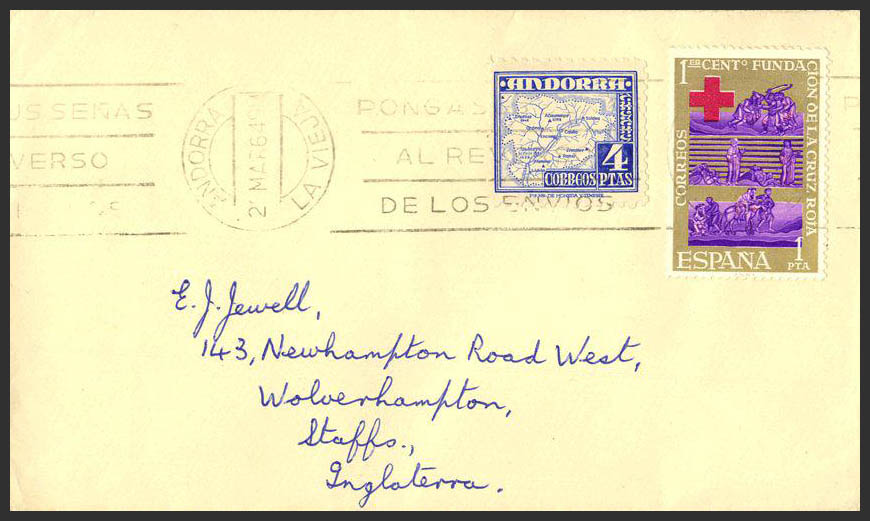 US SEÑAS
VERSO
ANDORRA
LA VIEJA
MAR 64
PONGA S
AL REV
DE LOS ENVIOS
P
ANDORRA
4
CORREOS PTAS
1ER CENTº FUNDA
CION DE LA CRUZ ROJA
CORREOS
ESPAÑA
1
PTA
E. J. Jewell,
143, Newhampton Road West,
Wolverhampton,
Staffs.,
Inglaterra.